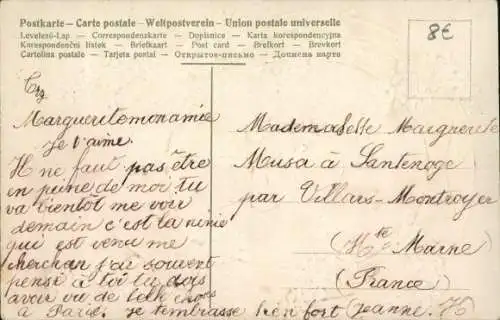 Postkarte – Carte postale – Weltpostverein – Union postale universelle
Levelező-Lap — Correspondenzkarte — Dopisnice — Karta korespondencyjna
Korespondenční listek — Briefkaart — Post card — Brefkort — Brevkort
Cartolina postale — Tarjeta postal — Открытое-письмо — Дописна карта
8€
Margueritemonamie
je t'aime.
Il ne faut pas être
en peine de moi tu
va bientot me voir
demain c'est la
qui est venu me
cherchan j'ai souvent
pensé à toi tu dois
avoir vu de
à Paris. je t'embrasse bien fort Jeanne.
Mademoiselle Marguerite
Musa à Santenoge
par Villars-Montroyer
(Hte Marne)
(France)